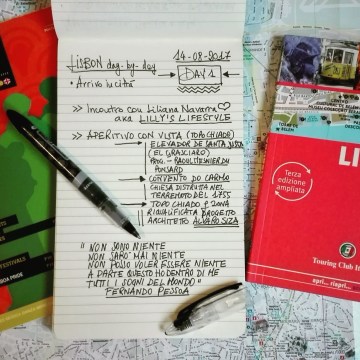 LISBON day-by-day
14-08-2017
• Arrivo in città
DAY 1
>> Incontro con Liliana Navarra ♡
aka LILLY'S LIFESTYLE
>> APERITIVO CON VISTA (TOPO CHIADO)
ELEVADOR DE SANTA JUSTA
(EL GRASCIARO)
PROG. - RAOUL MESNIER DU
PONSARD
CONVENTO DO CARMO
CHIESA DISTRUTTA NEL
TERREMOTO DEL 1755
TOPO CHIADO E ZONA
RIQUALIFICATA PROGETTO
ARCHITETTO ALVARO SIZA
"NON SONO NIENTE
NON SARÒ MAI NIENTE
NON POSSO VOLER ESSERE NIENTE
A PARTE QUESTO HO DENTRO DI ME
TUTTI I SOGNI DEL MONDO"
FERNANDO PESSOA
LI
Terza
edizione
ampliata
Touring Club It
apri... riapri...
FESTIVALS